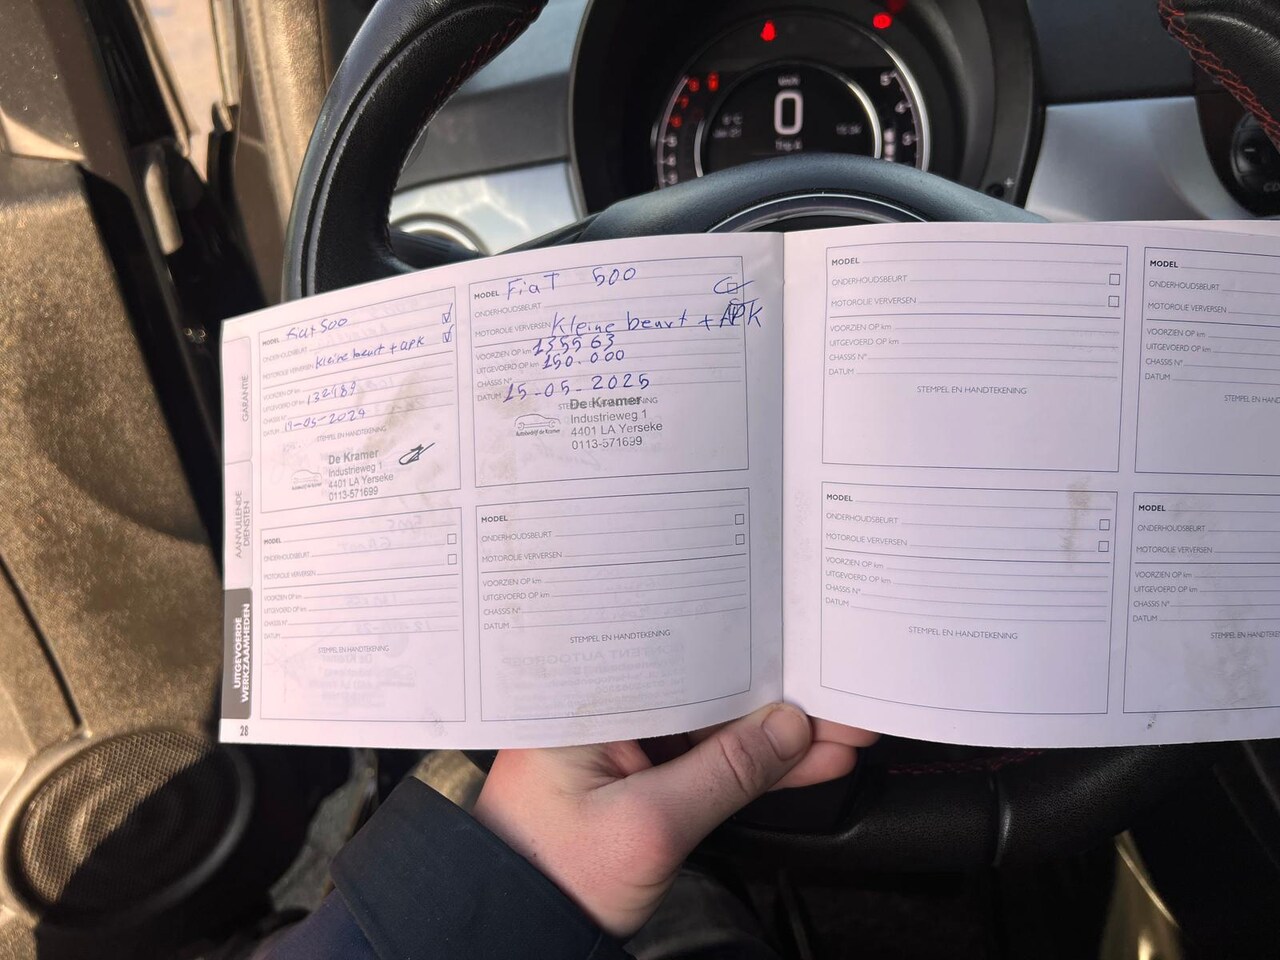 GARANTIE
AANVULLENDE DIENSTEN
UITGEVOERDE WERKZAAMHEDEN
28
MODEL Fiat 500
ONDERHOUDSBEURT
MOTOROLIE VERVERSEN Kleine beurt + apk
VOORZIEN OP km
UITGEVOERD OP km 132489
CHASSIS N°
DATUM 19-05-2024
STEMPEL EN HANDTEKENING
De Kramer
Industrieweg 1
4401 LA Yerseke
0113-571699
MODEL Fiat 500
ONDERHOUDSBEURT
MOTOROLIE VERVERSEN Kleine beurt + APK
VOORZIEN OP km 135563
UITGEVOERD OP km 150.000
CHASSIS N°
DATUM 15-05-2025
STEMPEL EN HANDTEKENING
De Kramer
Autobedrijf de Kramer
Industrieweg 1
4401 LA Yerseke
0113-571699
MODEL
ONDERHOUDSBEURT
MOTOROLIE VERVERSEN
VOORZIEN OP km
UITGEVOERD OP km
CHASSIS N°
DATUM
STEMPEL EN HANDTEKENING
MODEL
ONDERHOUDSBEURT
MOTOROLIE VERVERSEN
VOORZIEN OP km
UITGEVOERD OP km
CHASSIS N°
DATUM
STEMPEL EN HANDTEKENING
MODEL
ONDERHOUDSBEURT
MOTOROLIE VERVERSEN
VOORZIEN OP km
UITGEVOERD OP km
CHASSIS N°
DATUM
STEMPEL EN HANDTEKENING
MODEL
ONDERHOUDSBEURT
MOTOROLIE VERVERSEN
VOORZIEN OP km
UITGEVOERD OP km
CHASSIS N°
DATUM
STEMPEL EN
MODEL
ONDERHOUDSBEURT
MOTOROLIE VERVERSEN
VOORZIEN OP km
UITGEVOERD OP km
CHASSIS N°
DATUM
STEMPEL EN HANDTEKENING
MODEL
ONDERHOUDSBEURT
MOTOROLIE VERVERSEN
VOORZIEN OP km
UITGEVOERD OP km
CHASSIS N°
DATUM
STEMPEL EN
km/h
0
Trip A